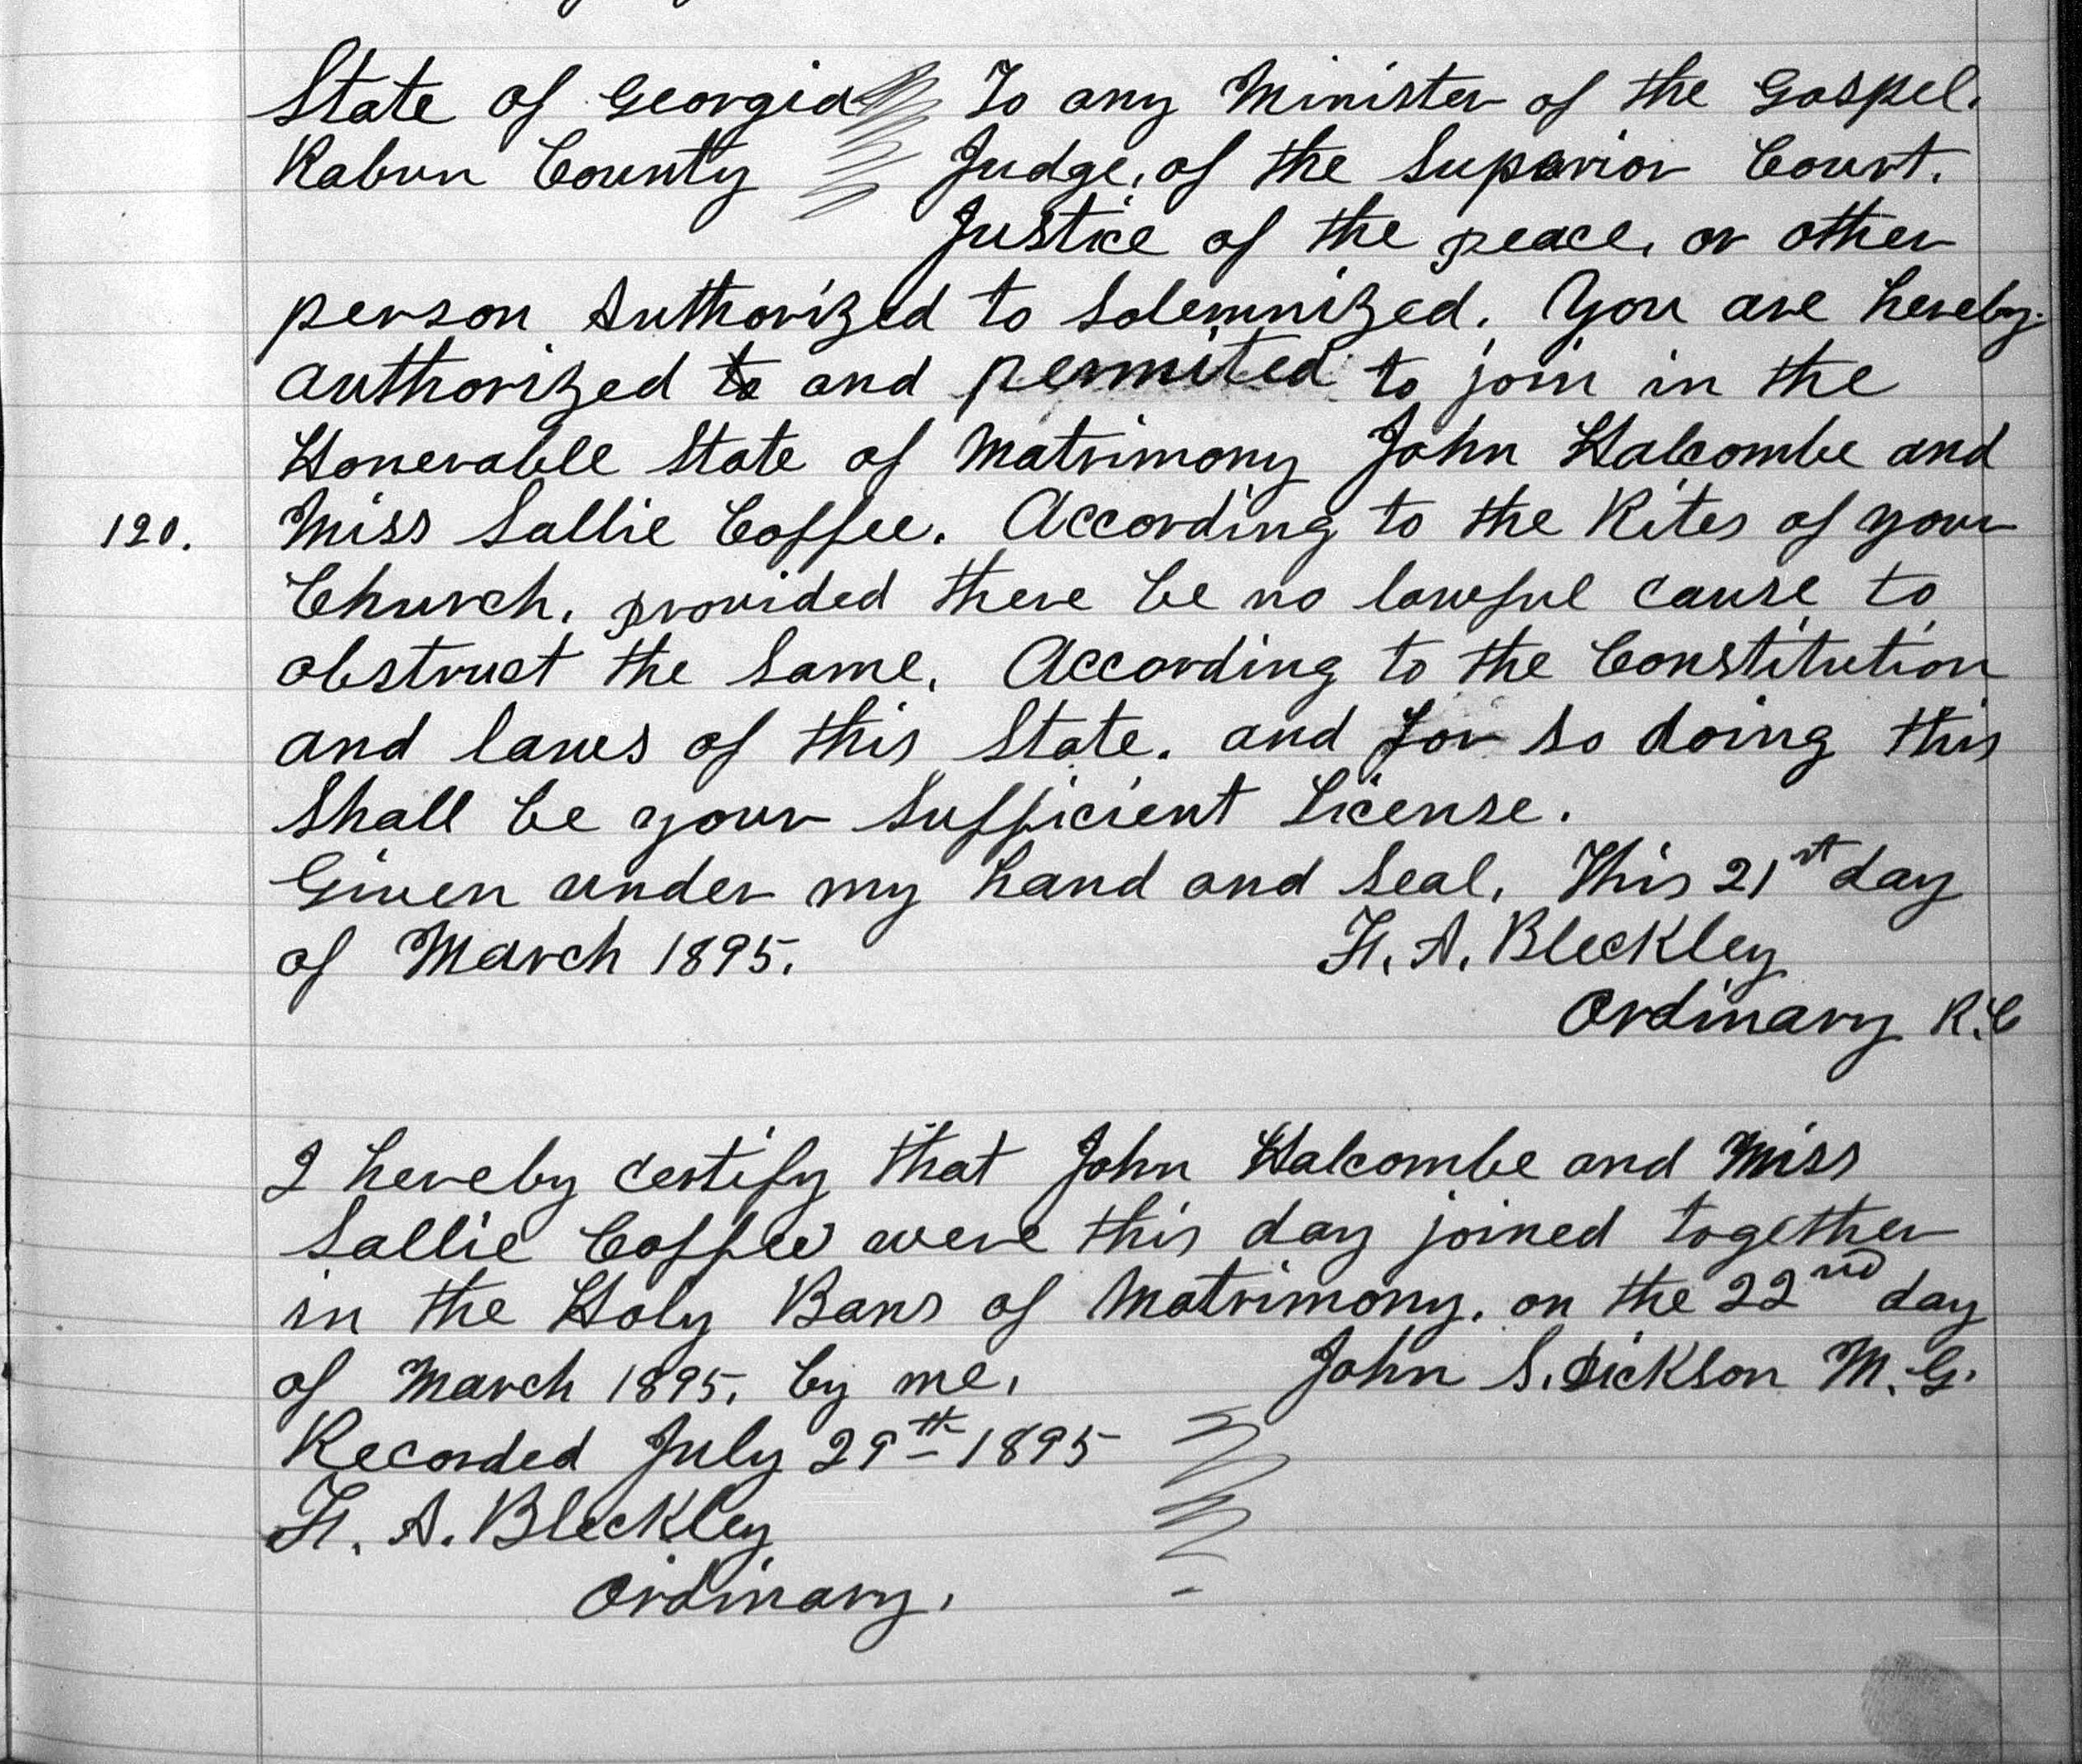 State of Georgia To any Minister of the Gospel.
Rabun County Judge, of the Superior Court.
Justice of the peace, or other
person Authorized to Solemnized. You are hereby
authorized to and permited to join in the
Honerable State of Matrimony John Halcombe and
120. Miss Sallie Coffee. According to the Rites of your
Church, provided there be no lawful cause to
obstruct the Same, According to the Constitution
and laws of this State. and for so doing this
Shall be your Sufficient License.
Given under my hand and Seal, This 21st day
of March 1895. F. A. Bleckley
Ordinary R.C
I hereby certify that John Halcombe and Miss
Sallie Coffee were this day joined together
in the Holy Bans of Matrimony, on the 22nd day
of March 1895, by me, John S. Dickson M.G.
Recorded July 29th 1895
F. A. Bleckley
Ordinary.